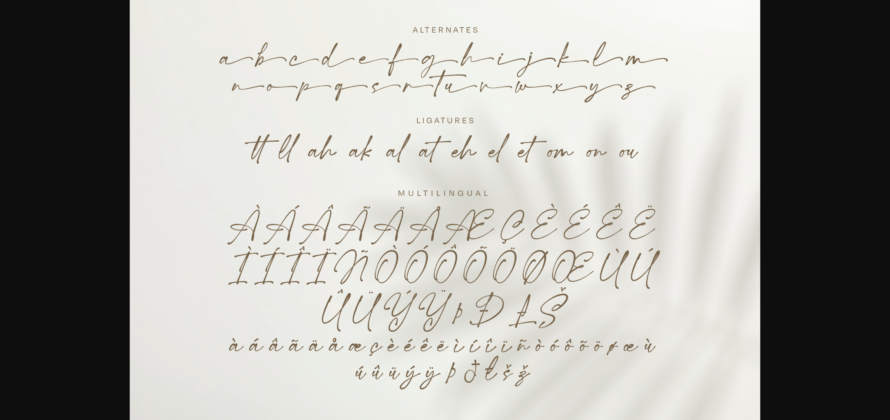 ALTERNATES
a b c d e f g h i j k l m
n o p q s r t u v w x y z
LIGATURES
tt ll ah ak al at eh el et om on ou
MULTILINGUAL
À Á Â Ã Ä Å Æ Ç È É Ê Ë
Ì Í Î Ï Ñ Ò Ó Ô Õ Ö Ø Œ Ù Ú
Û Ü Ý Ÿ Þ Ð Ł Š
à á â ã ä å æ ç è é ê ë ì í î ï ñ ò ó ô õ ö ø œ ù
ú û ü ý ÿ þ ð ł š ž